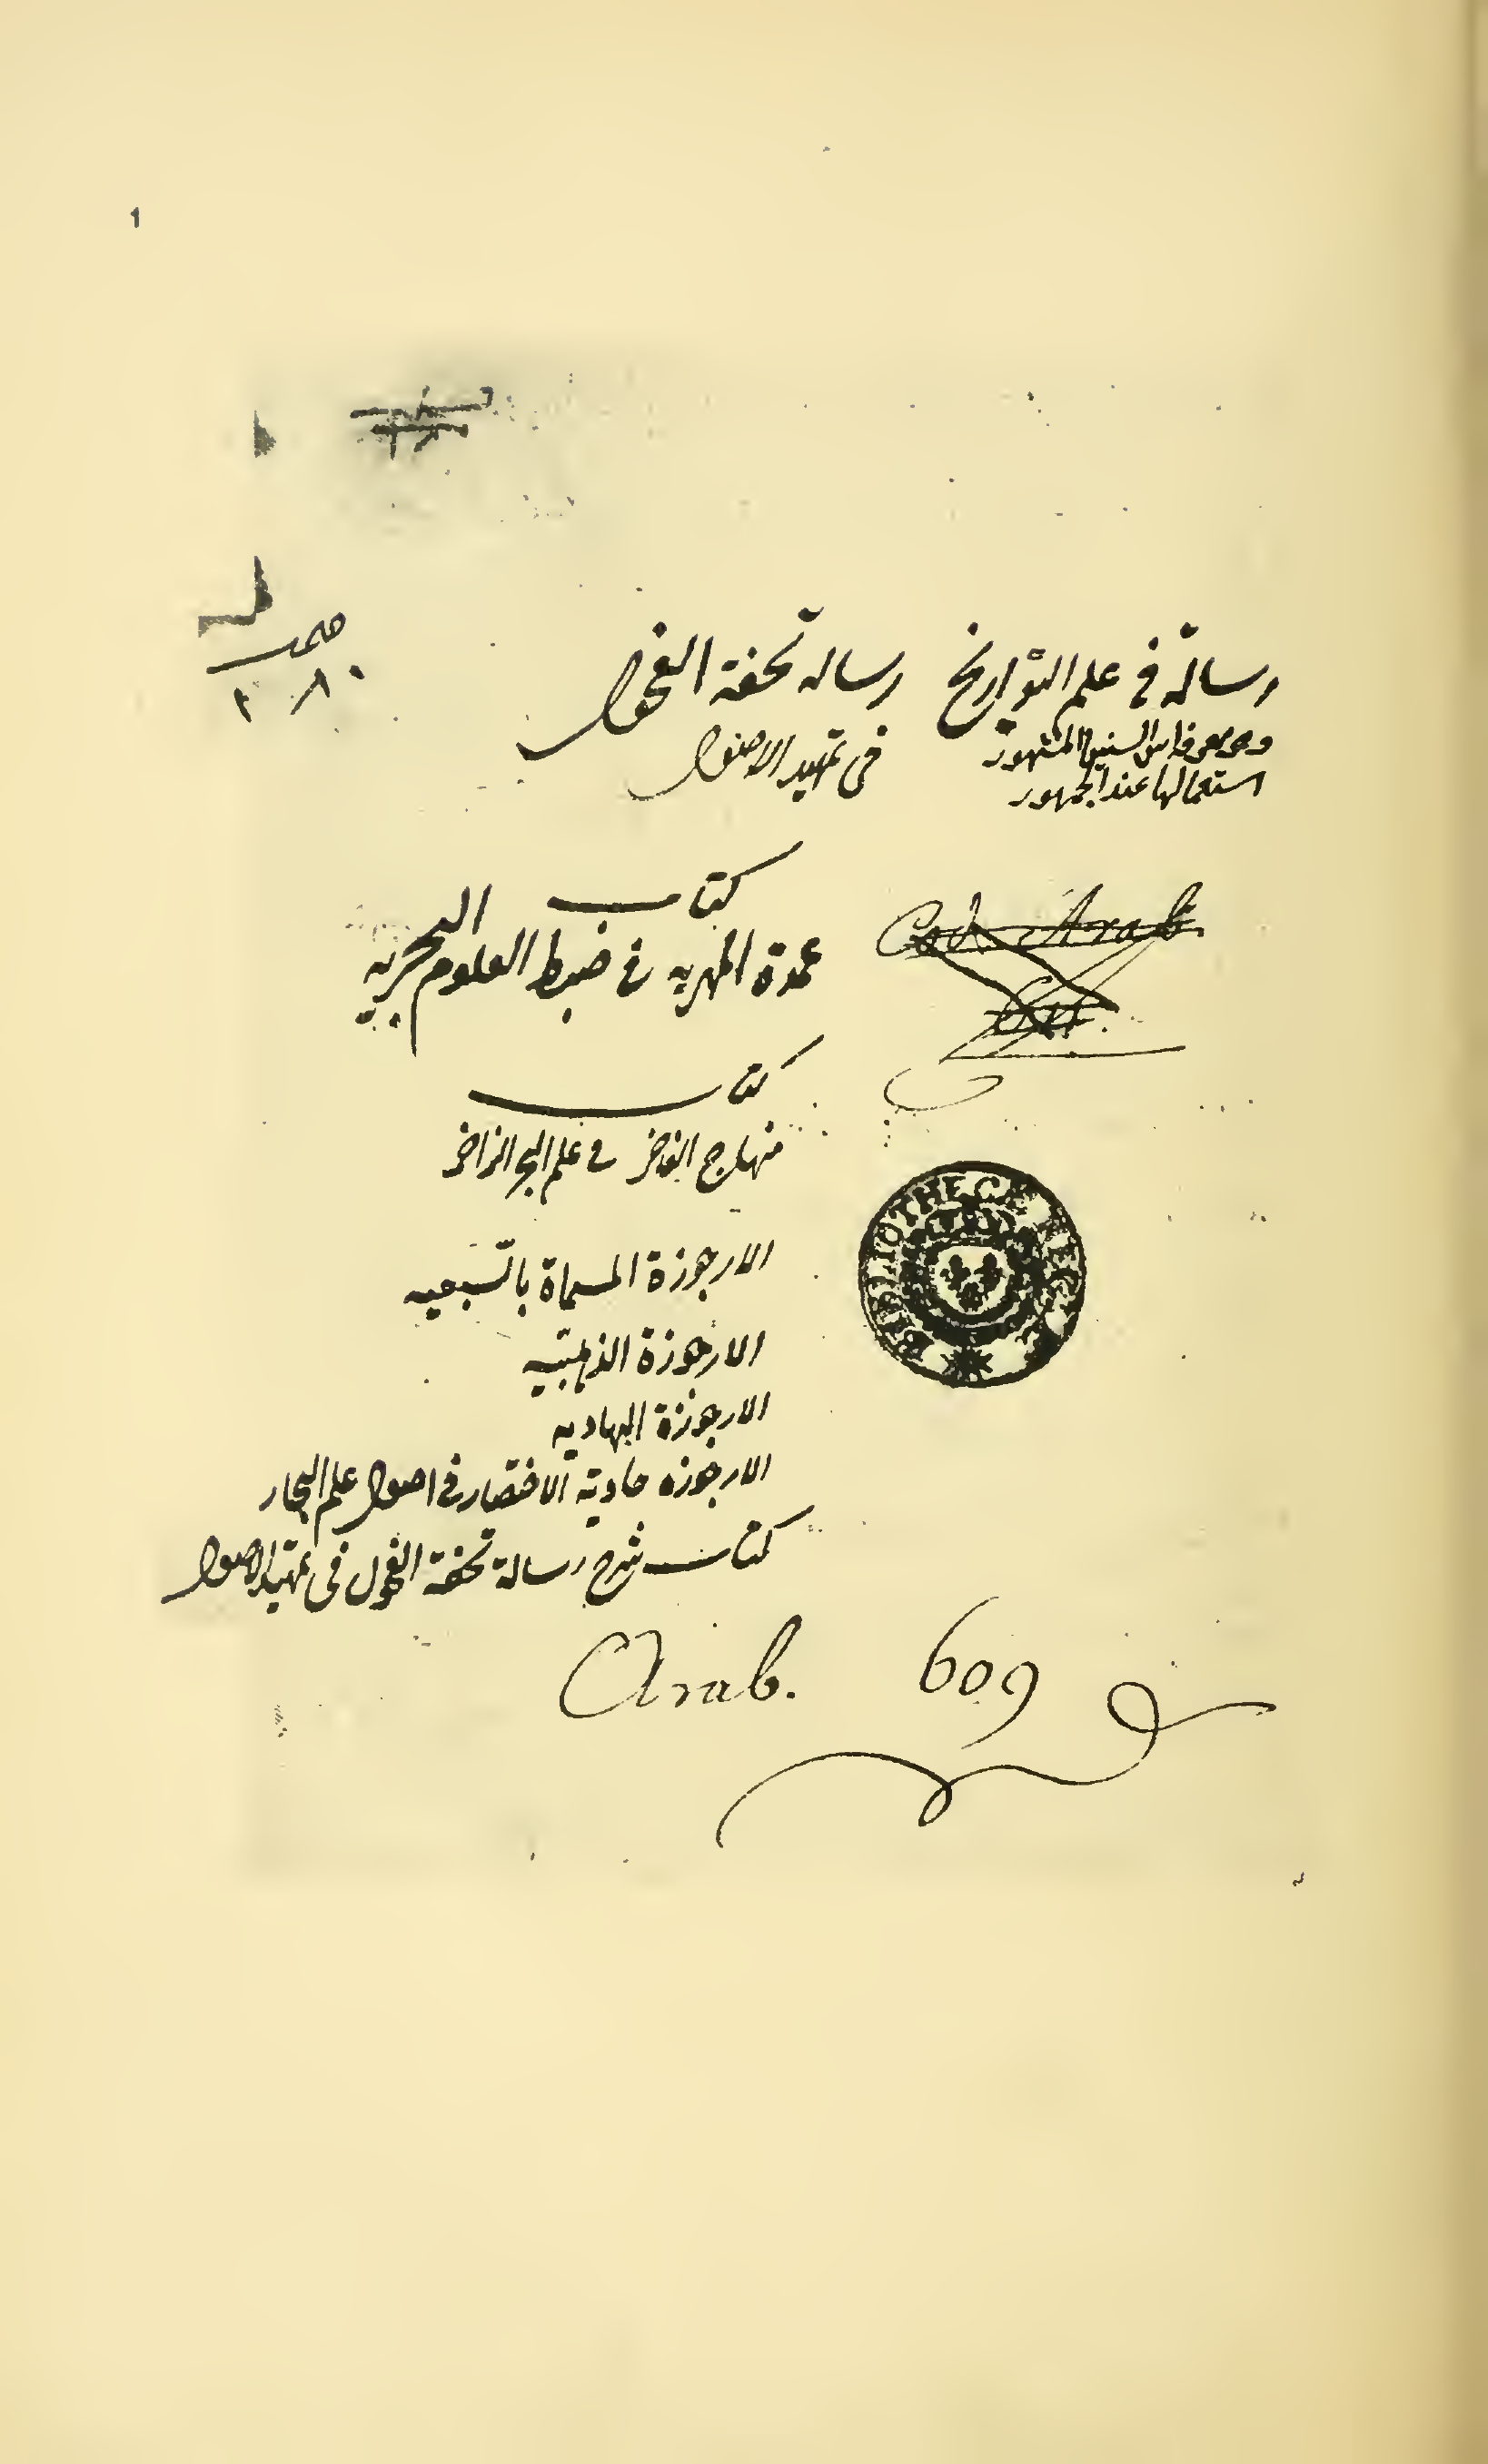 1
رسالة في علم التواريخ
وهو معرفة اس السنين المشهور
استعمالها عند الجمهور
رساله تحفة الفحول
فى تمهيد الاصول
كتاب
عمدة المهريه في ضبط العلوم البحريه
Cod. Arab.
كتاب
منهاج الفاخر في علم البحر الزاخر
الارجوزة المسماة بالسبعيه
الارجوزة الذهبيه
الارجوزة الهاديه
الارجوزه حاوية الاختصار في اصول علم البحار
كتاب شرح رسالة تحفة الفحول فى تمهيد الاصول
BIBLIOTHECA REGIA
Arab. 609